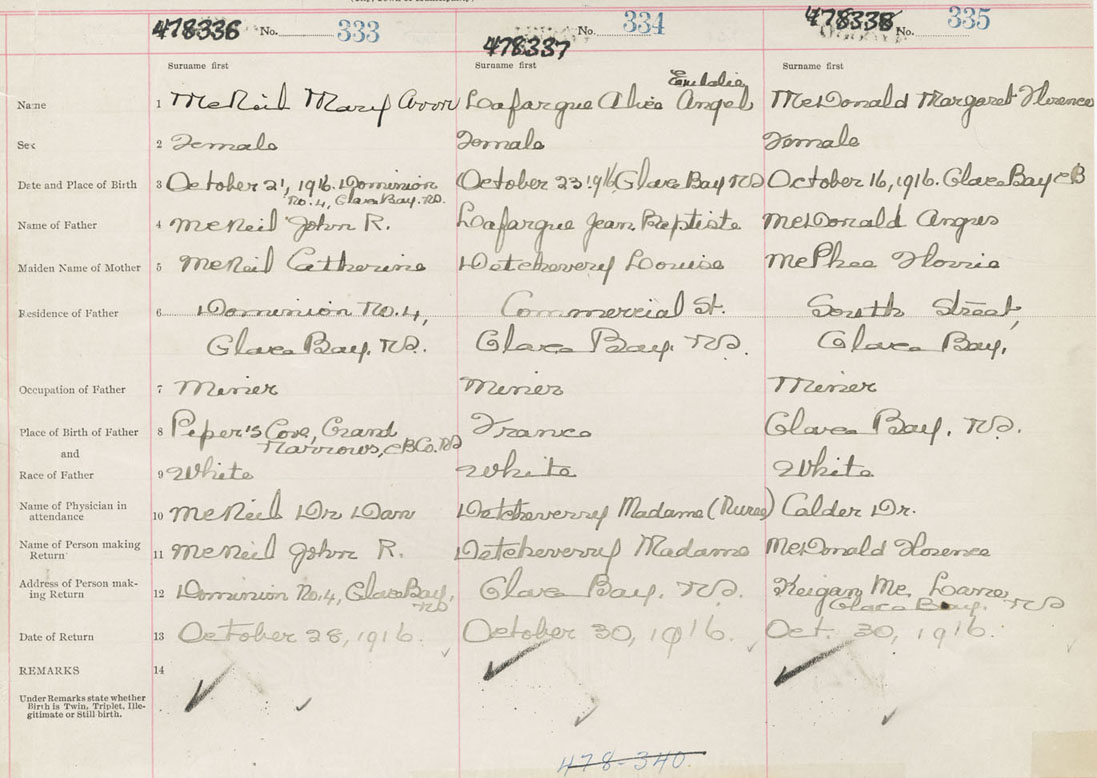 478336 No. 333
478337 No. 334
478338 No. 335
Surname first Surname first Surname first
Name 1 McNeil Mary Lafargue Alice Eudolie Angel McDonald Margaret Florence
Sex 2 Female Female Female
Date and Place of Birth 3 October 21, 1916. Dominion No. 4, Glace Bay. NS. October 23 1916 Glace Bay NS October 16, 1916. Glace Bay CB
Name of Father 4 McNeil John R. Lafargue Jean Baptiste McDonald Angus
Maiden Name of Mother 5 McNeil Catherine Detcheverry Louise McPhee Florrie
Residence of Father 6 Dominion No. 4, Commercial St. South Street,
Glace Bay. NS. Glace Bay. NS. Glace Bay,
Occupation of Father 7 Miner Miner Miner
Place of Birth of Father 8 Piper's Cove, Grand Narrows, CB Co. NS France Glace Bay, NS.
and
Race of Father 9 White White White
Name of Physician in attendance 10 McNeil Dr Dan Detcheverry Madame (Nurse) Calder Dr.
Name of Person making Return 11 McNeil John R. Detcheverry Madame McDonald Florence
Address of Person making Return 12 Dominion No. 4, Glace Bay, NS Glace Bay. NS. Keigan Mc. Lane, Glace Bay. NS
Date of Return 13 October 28, 1916. October 30, 1916. Oct. 30, 1916.
REMARKS 14
Under Remarks state whether
Birth is Twin, Triplet, Ille-
gitimate or Still birth.
478-340.